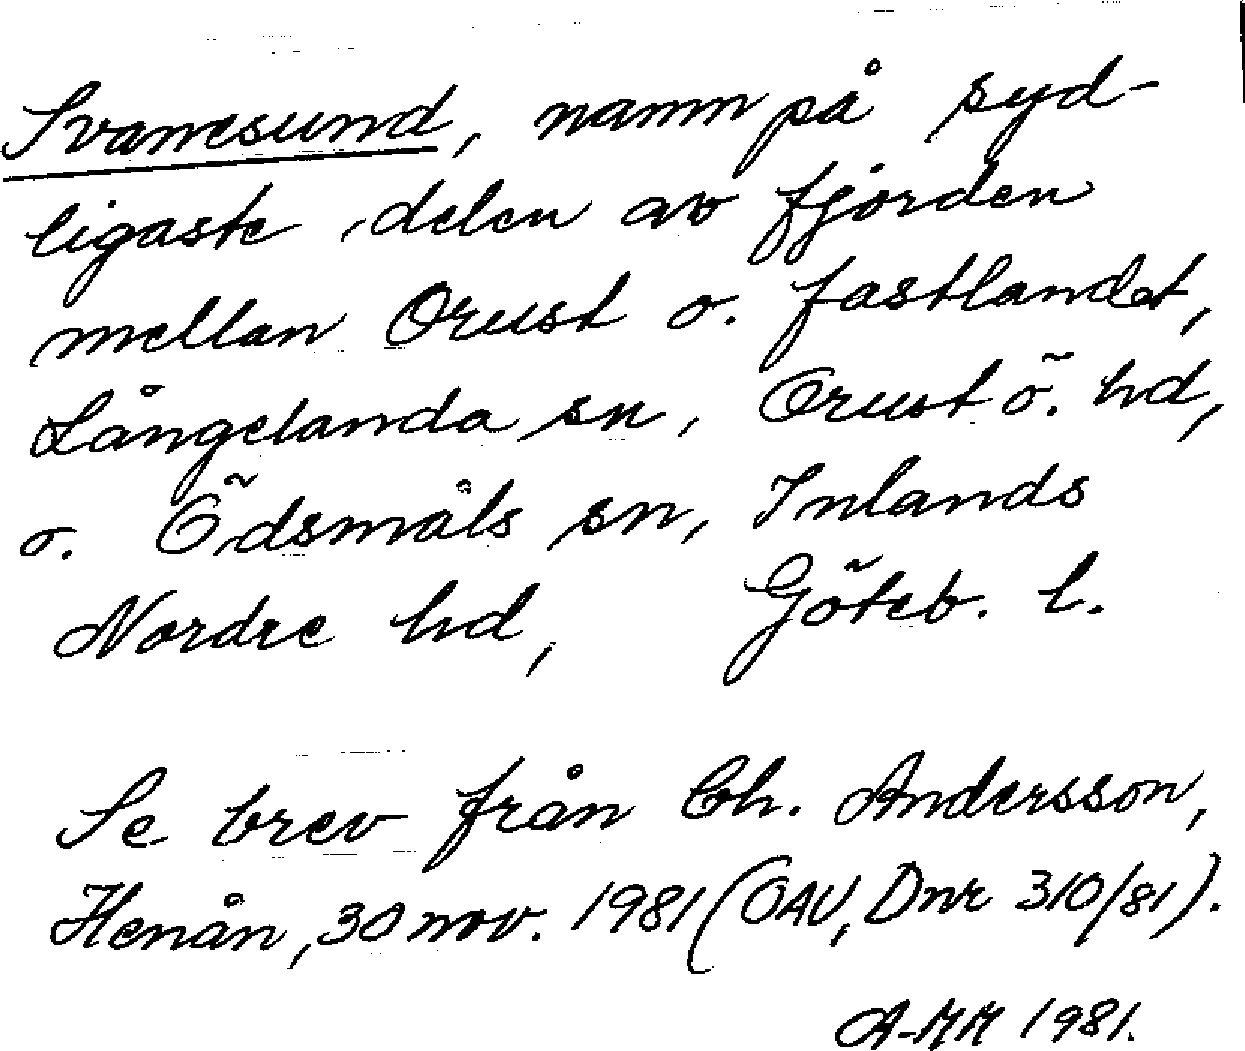 Svanesund, namn på syd-
ligaste delen av fjorden
mellan Orust o. fastlandet,
Långelanda sn, Orust ö. hd,
o. Ödsmåls sn, Inlands
Nordre hd, Göteb. l.
Se brev från Ch. Andersson,
Henån, 30 nov. 1981 (OAU, Dnr 310/81).
A-MM 1981.